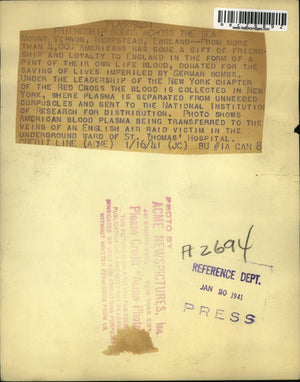 FRIENDSHIP BONDS ACROSS THE SEA
MOUNT VERNON, HEMPSTEAD, ENGLAND--FROM MORE
THAN 4,000 AMERICANS HAS COME A GIFT OF FRIEND-
SHIP AND LOYALTY TO ENGLAND IN THE FORM OF A
PINT OF THEIR OWN LIFE BLOOD, DONATED FOR THE
SAVING OF LIVES IMPERILED BY GERMAN BOMBS.
UNDER THE LEADERSHIP OF THE NEW YORK CHAPTER
OF THE RED CROSS THE BLOOD IS COLLECTED IN NEW
YORK, WHERE PLASMA IS SEPARATED FROM UNNEEDED
CORPUSCLES AND SENT TO THE NATIONAL INSTITUTION
OF RESEARCH FOR DISTRIBUTION. PHOTO SHOWS
AMERICAN BLOOD PLASMA BEING TRANSFERRED TO THE
VEINS OF AN ENGLISH AIR RAID VICTIM IN THE
UNDERGROUND WARD OF ST. THOMAS' HOSPITAL.
CREDIT LINE (ACME) 1/16/41 (JC) BU #1A CAN 8
A2694
REFERENCE DEPT.
JAN 20 1941
PRESS
PHOTO BY
ACME NEWSPICTURES, Inc.
NEW YORK CITY
Please Credit "Acme Photo"